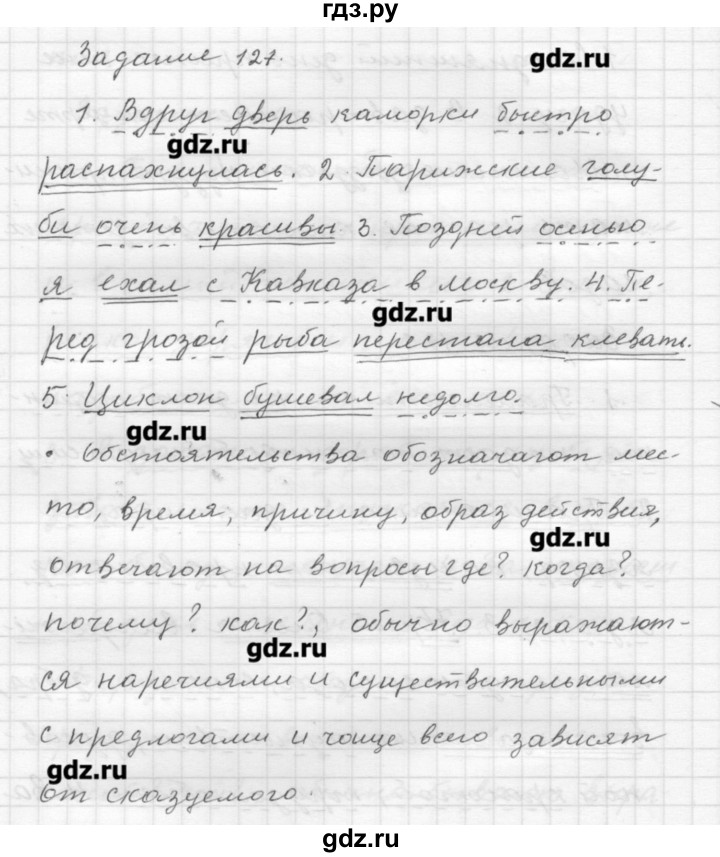 гдз.ру
Задание 127.
gdz.ru
1. Вдруг дверь каморки быстро
gdz.ru
распахнулась. 2 Парижские голу-
би очень красивы 3. Поздней осенью
я ехал с Кавказа в москву. 4. Пе-
gdz.ru
ред грозой рыба перестала клевать.
5. Циклон бушевал недолго.
gdz.ru
• Обстоятельства обозначают мес-
то, время, причину, образ действия,
gdz.ru
отвечают на вопросы где? когда?
почему? как?, обычно выражают-
gdz.ru
ся наречиями и существительными
с предлогами и чаще всего зависят
gdz.ru
от сказуемого
gdz.ru